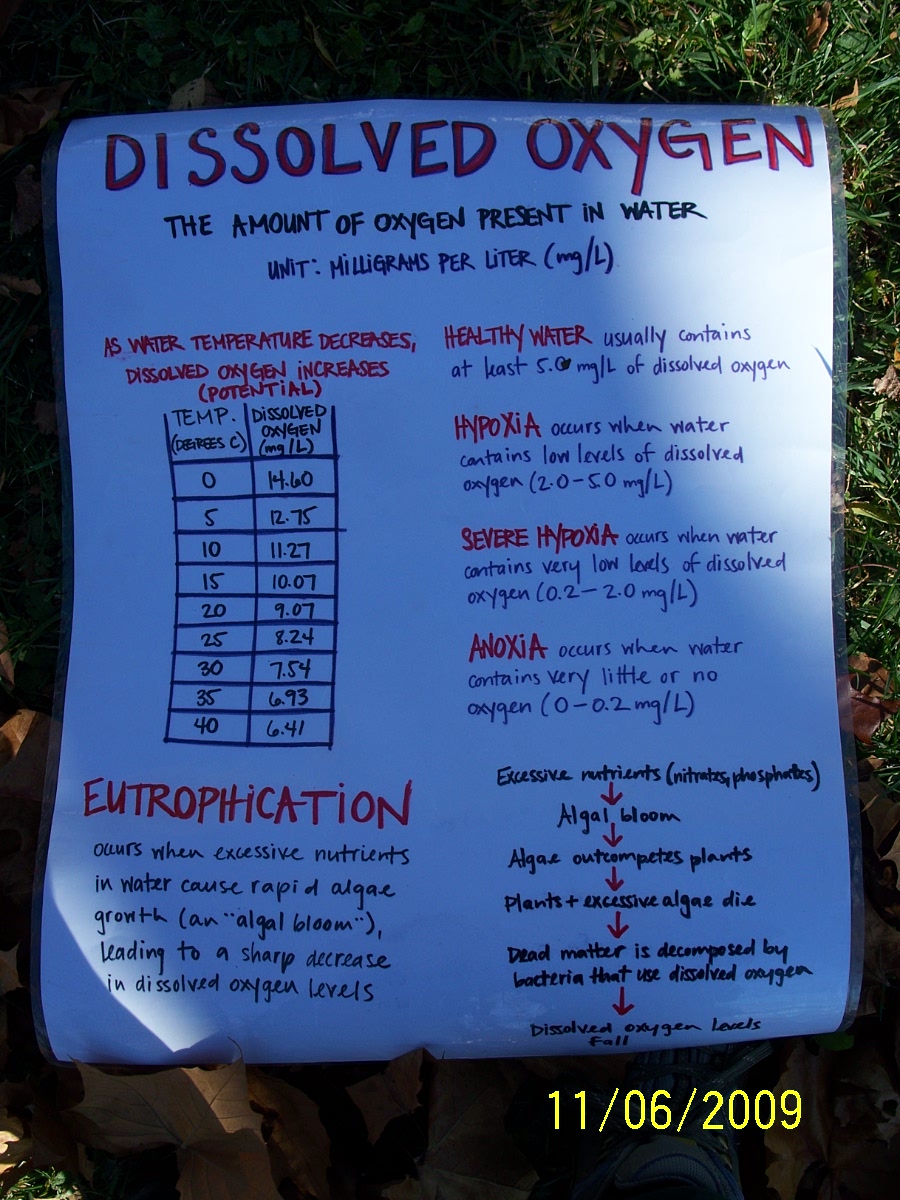 DISSOLVED OXYGEN
THE AMOUNT OF OXYGEN PRESENT IN WATER
UNIT: MILLIGRAMS PER LITER (mg/L)
AS WATER TEMPERATURE DECREASES,
DISSOLVED OXYGEN INCREASES
(POTENTIAL)
TEMP. (DEGREES C) DISSOLVED OXYGEN (mg/L)
0 14.60
5 12.75
10 11.27
15 10.07
20 9.07
25 8.24
30 7.54
35 6.93
40 6.41
HEALTHY WATER usually contains
at least 5.0 mg/L of dissolved oxygen
HYPOXIA occurs when water
contains low levels of dissolved
oxygen (2.0-5.0 mg/L)
SEVERE HYPOXIA occurs when water
contains very low levels of dissolved
oxygen (0.2-2.0 mg/L)
ANOXIA occurs when water
contains very little or no
oxygen (0-0.2 mg/L)
EUTROPHICATION
occurs when excessive nutrients
in water cause rapid algae
growth (an "algal bloom"),
leading to a sharp decrease
in dissolved oxygen levels
Excessive nutrients (nitrates, phosphates)
↓
Algal bloom
↓
Algae outcompetes plants
↓
Plants + excessive algae die
↓
Dead matter is decomposed by
bacteria that use dissolved oxygen
↓
Dissolved oxygen levels
fall
11/06/2009